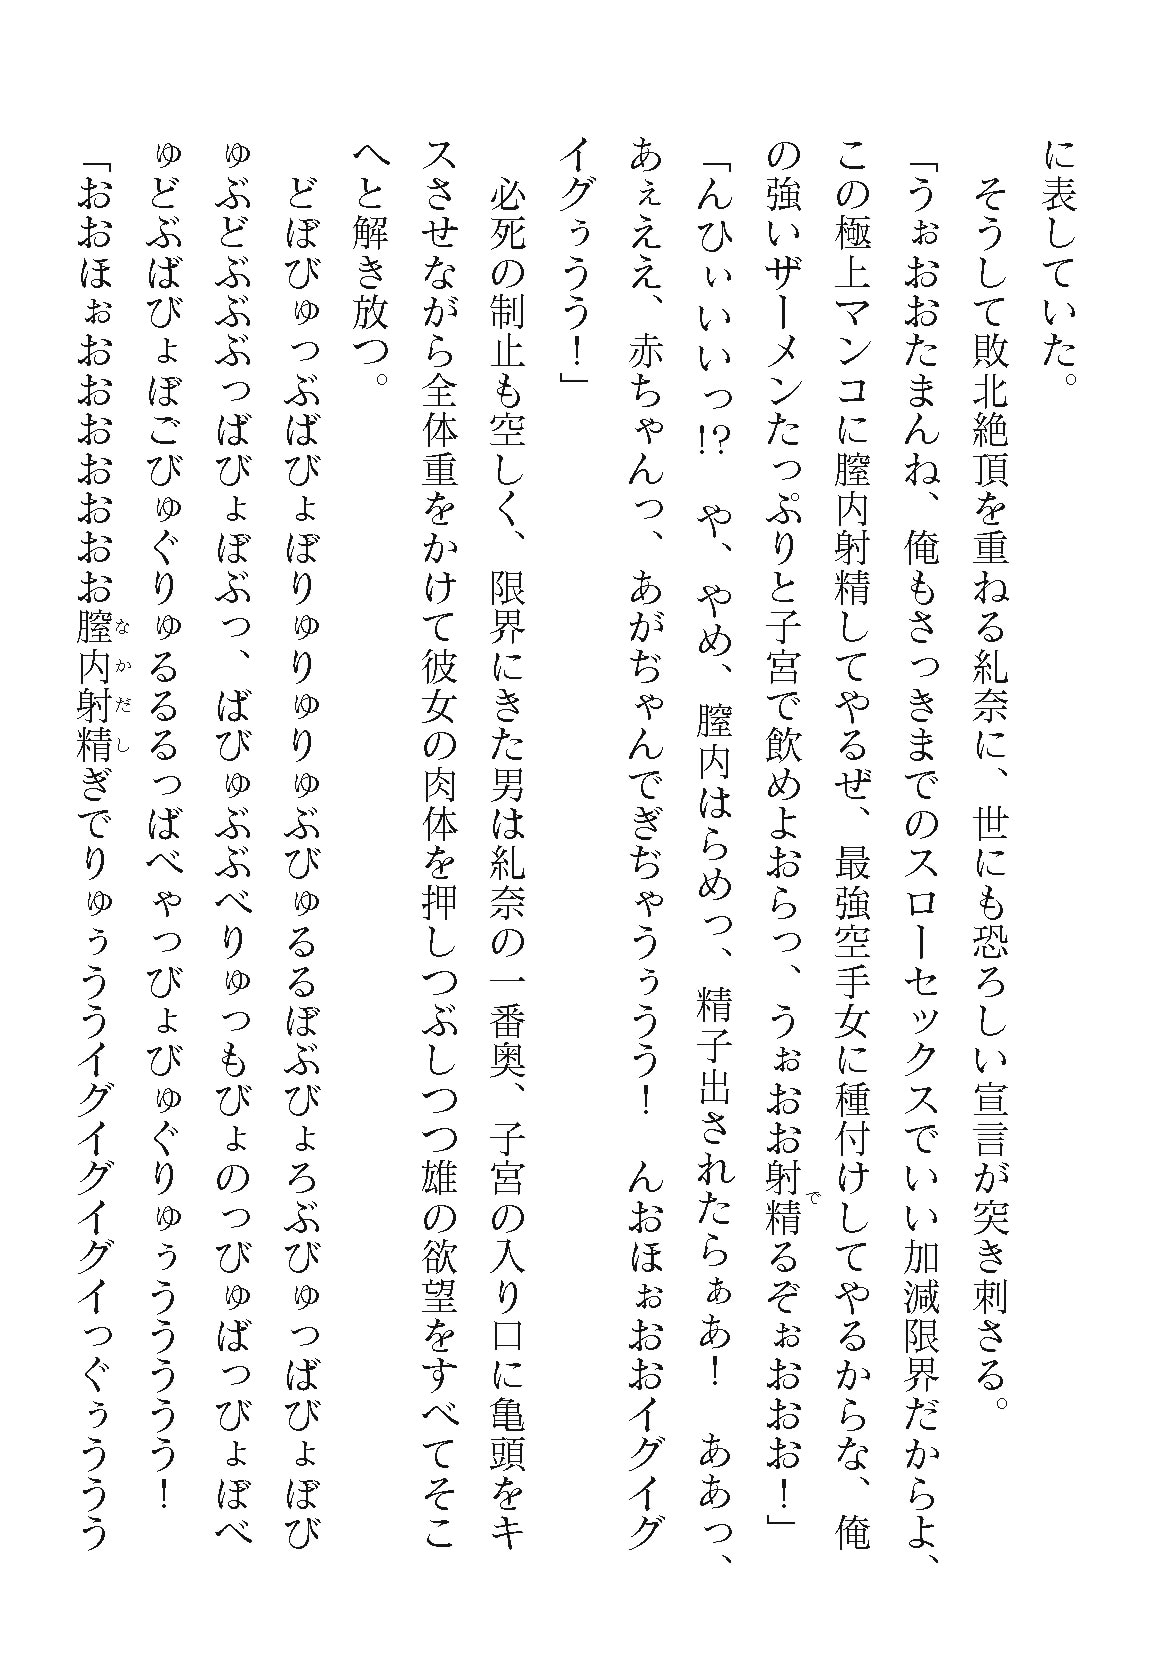 に表していた。
　そうして敗北絶頂を重ねる糺奈に、世にも恐ろしい宣言が突き刺さる。
「うぉおおたまんね、俺もさっきまでのスローセックスでいい加減限界だからよ、
この極上マンコに膣内射精してやるぜ、最強空手女に種付けしてやるからな、俺
の強いザーメンたっぷりと子宮で飲めよおらっ、うぉおお射精でるぞぉおおお！」
「んひぃいいっ!?　や、やめ、膣内はらめっ、精子出されたらぁあ！　ああっ、
あぇええ、赤ちゃんっ、あがぢゃんでぎぢゃうぅうう！　んおほぉおおイグイグ
イグぅうう！」
　必死の制止も空しく、限界にきた男は糺奈の一番奥、子宮の入り口に亀頭をキ
スさせながら全体重をかけて彼女の肉体を押しつぶしつつ雄の欲望をすべてそこ
へと解き放つ。
　どぼびゅっぶばびょぼりゅりゅりゅぶびゅるるぼぶびょろぶびゅっばびょぼび
ゅぶどぶぶぶっばびょぼぶっ、ばびゅぶぶべりゅっもびょのっびゅばっびょぼべ
ゅどぶばびょぼごびゅぐりゅるるるっばべゃっびょびゅぐりゅぅうううう！
「おおほぉおおおおおおお膣内射精なかだしぎでりゅぅううイグイグイグイっぐぅううう